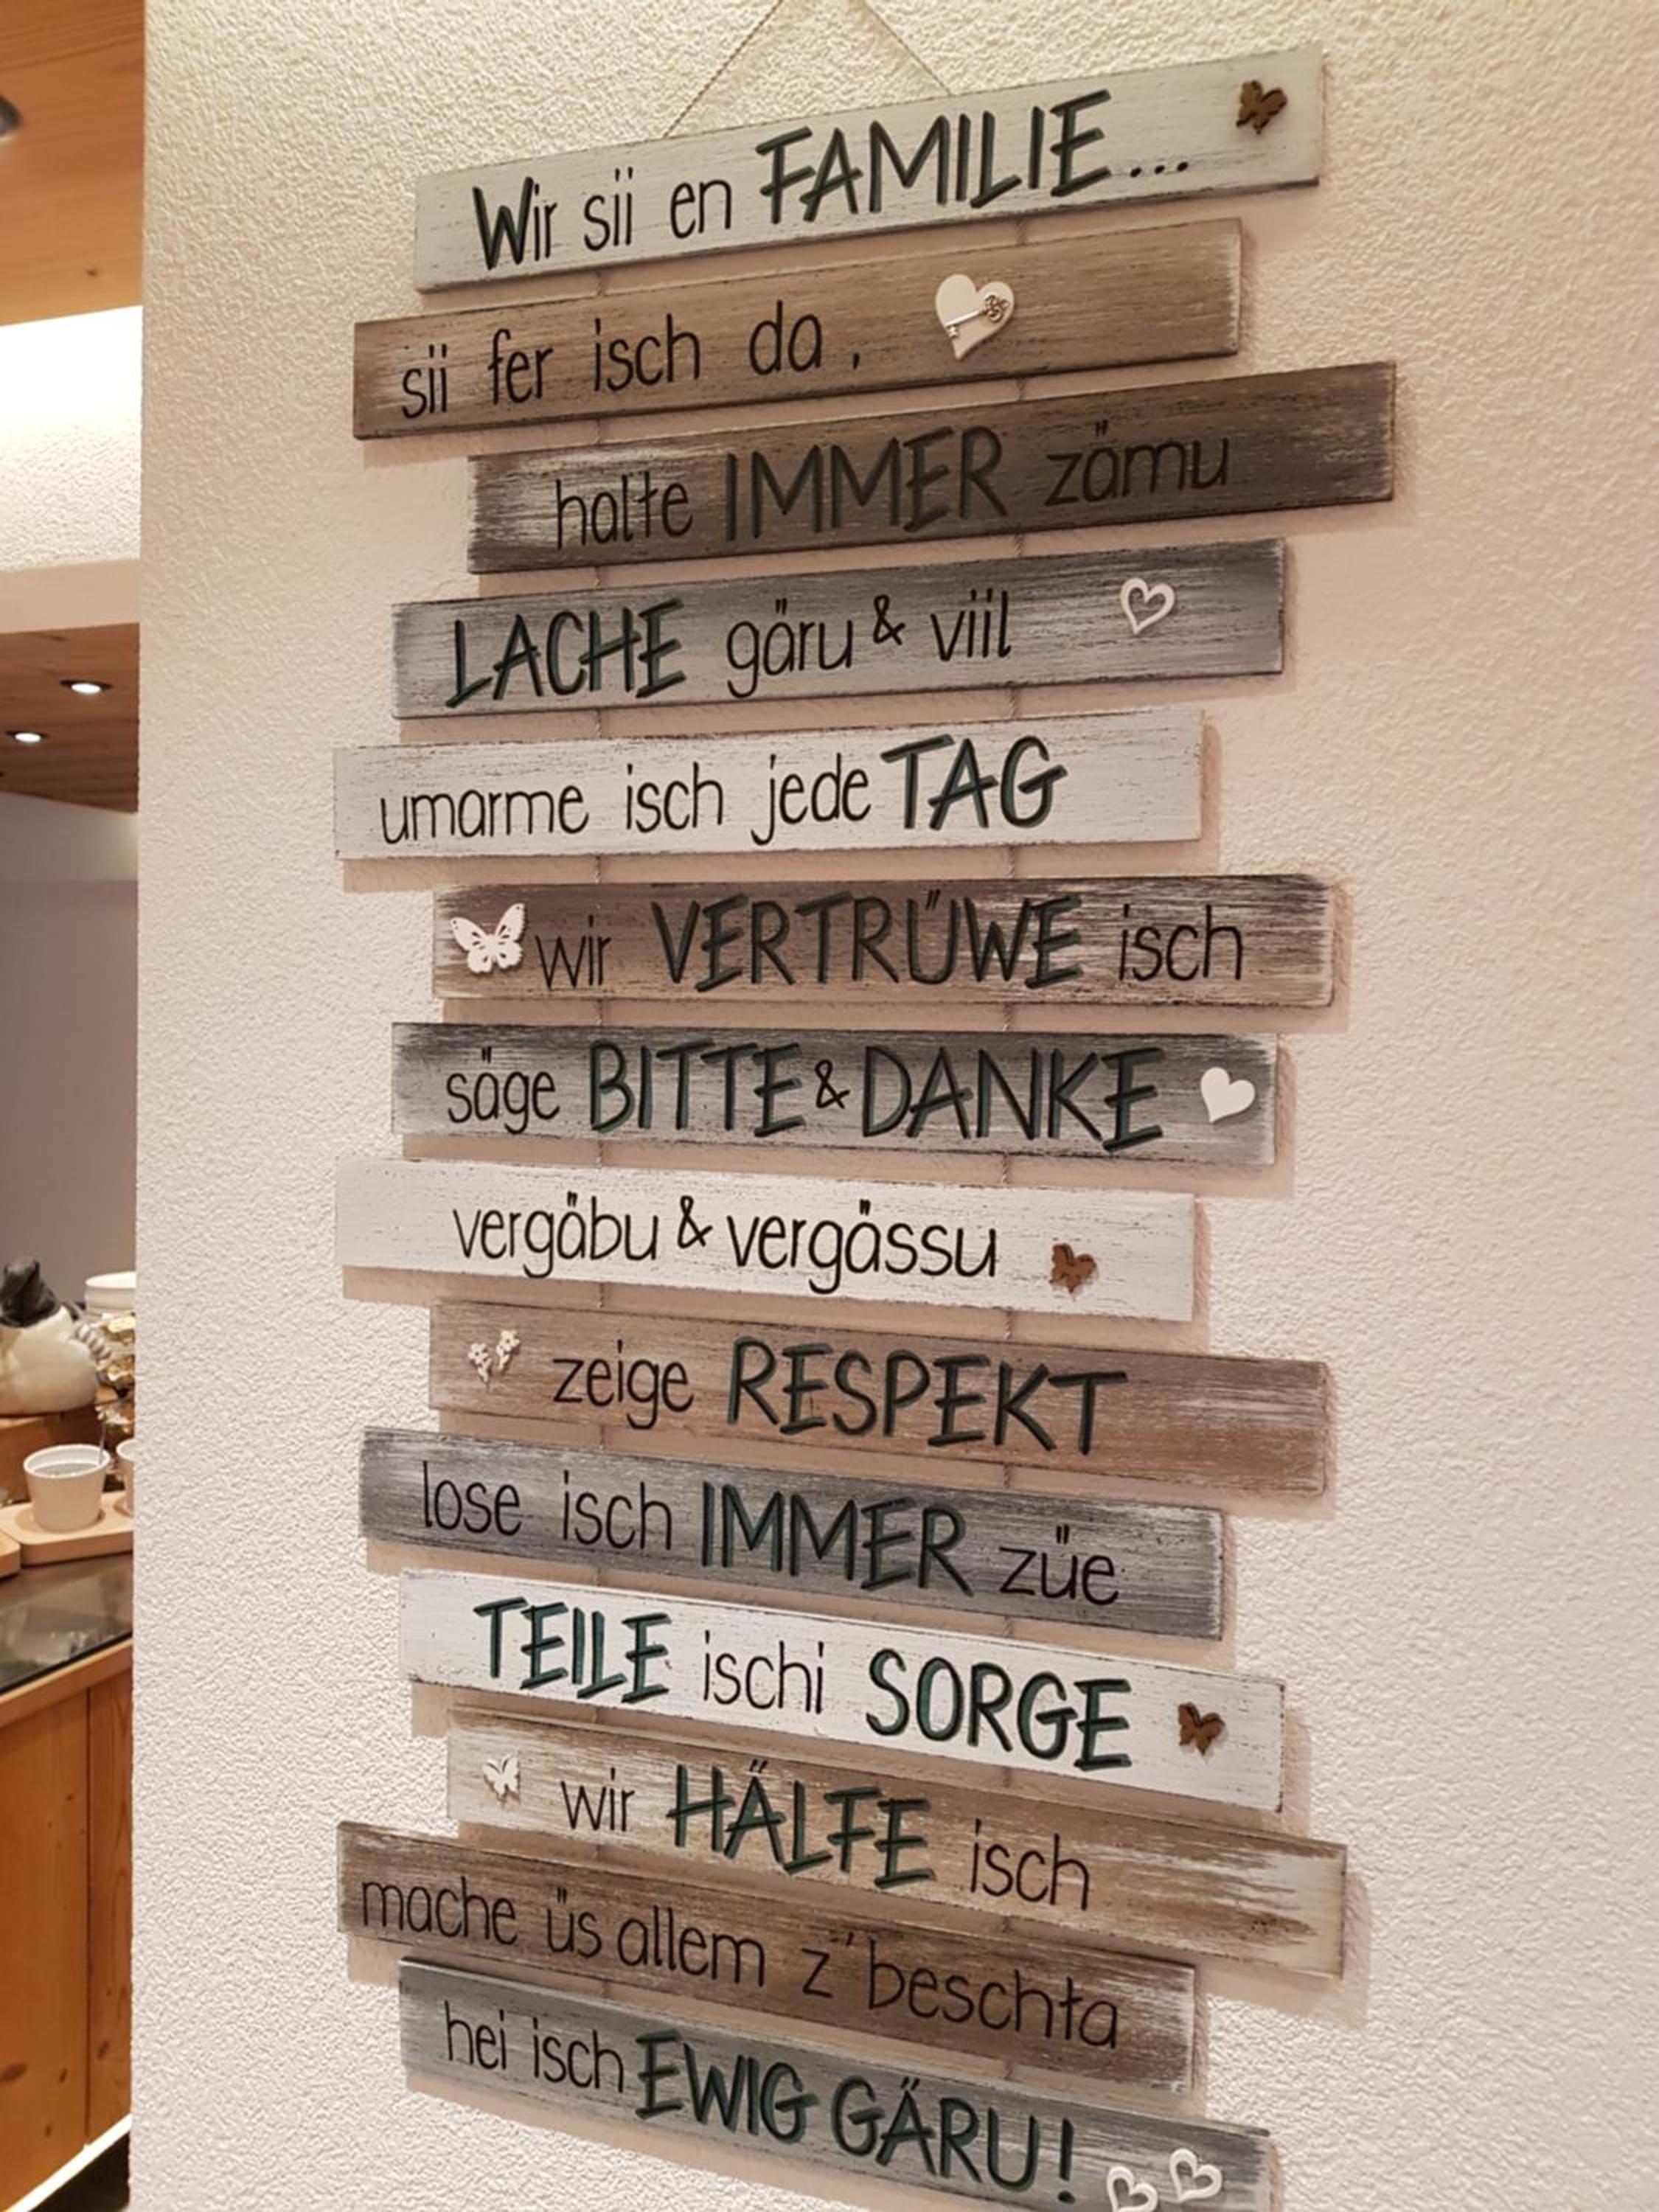 Wir sii en FAMILIE...
sii fer isch da.
halte IMMER zämu
LACHE gäru & viil
umarme isch jede TAG
wir VERTRÜWE isch
säge BITTE & DANKE
vergäbu & vergässu
zeige RESPEKT
lose isch IMMER züe
TEILE ischi SORGE
wir HÄLFE isch
mache üs allem z'beschta
hei isch EWIG GÄRU!